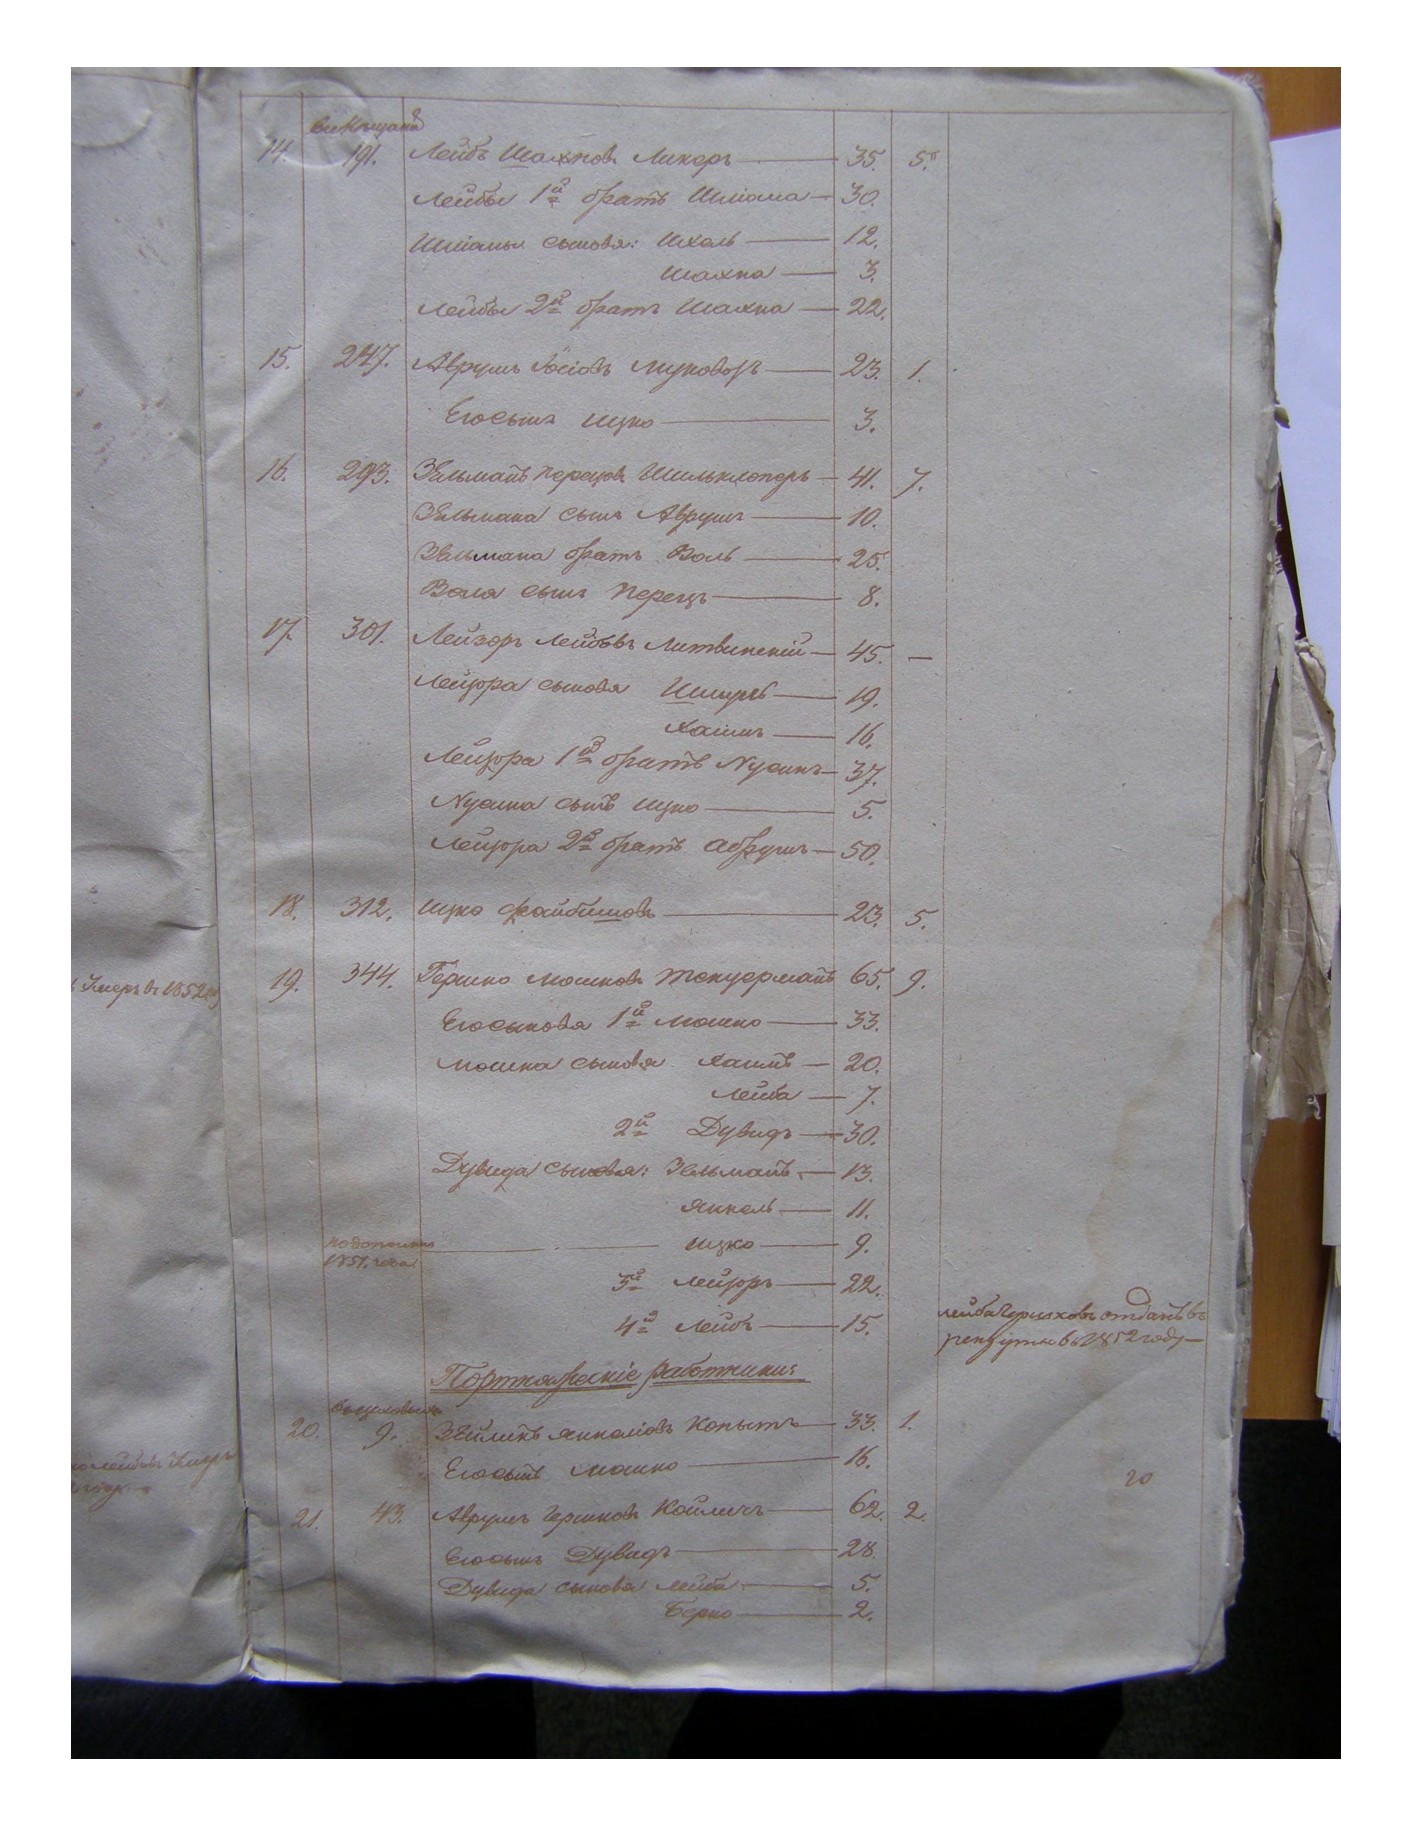 14. 191. Лейбъ Шахновъ Ликеръ — 35. 5.
Лейбы 1й братъ Шліома — 30.
Шліомы сыновя: Ихель — 12.
Шахна — 3.
Лейбы 2й братъ Шахна — 22.
15. 247. Аврумъ Іосіовъ — 23. 1.
Его сынъ Ицко — 3.
16. 293. Зельманъ Перецовъ Шильклоперъ — 41. 7.
Зельмана сынъ Аврумъ — 10.
Зельмана братъ Воль — 25.
Воля сынъ Перецъ — 8.
17. 301. Лейзоръ Лейбовъ Литвинскій — 45. —
Лейзора сыновя — 19.
Хаимъ — 16.
Лейзора 1й братъ Нусинъ — 37.
Нусина сынъ Ицко — 5.
Лейзора 2й братъ Абрумъ — 50.
18. 312. Ицко Файбишовъ — 23. 5.
Умеръ въ 1852
19. 344. Гершко Мошковъ — 65. 9.
Его сыновя 1й Мошко — 33.
Мошка сыновя Хаимъ — 20.
Лейба — 7.
2й Дувидъ — 30.
Дувида сыновя: Зельманъ — 13.
Янкель — 11.
1851. года Ицко — 9.
3й Лейзоръ — 22.
4й Лейбъ — 15.
Лейба Гершковъ отданъ въ
рекруты въ 1852 году —
Портнояжскіе работники:
20. 9. Зейликъ Янкеліовъ Копытъ — 33. 1.
Его сынъ Мошко — 16.
20
21. 43. Аврумъ Гершковъ — 62. 2.
Его сынъ Дувидъ — 28.
Дувида сыновя Лейба — 5.
Берко — 2.